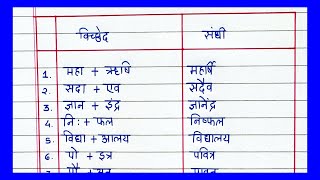 विच्छेद संधी
1. महा + ऋषि महार्षि
2. सदा + एव सदैव
3. ज्ञान + इंद्र ज्ञानेंद्र
4. निः + फल निष्फल
5. विद्या + आलय विद्यालय
6. पो + इत्र पवित्र